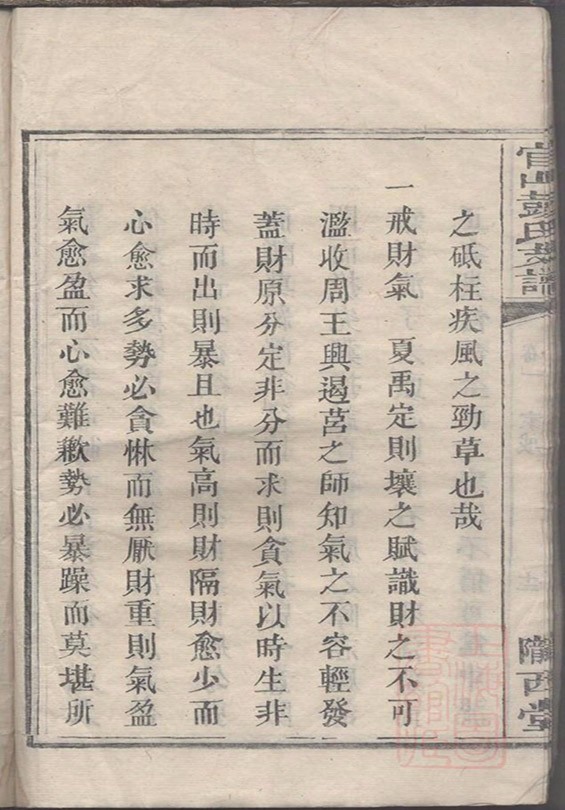 之砥柱疾風之勁草也哉
一戒財氣 夏禹定則壤之賦識財之不可
濫收周王興遏莒之師知氣之不容輕發
蓋財原分定非分而求則貪氣以時生非
時而出則暴且也氣高則財隔財愈少而
心愈求多勢必貪惏而無厭財重則氣盈
氣愈盈而心愈難歉勢必暴躁而莫堪所
隴西堂